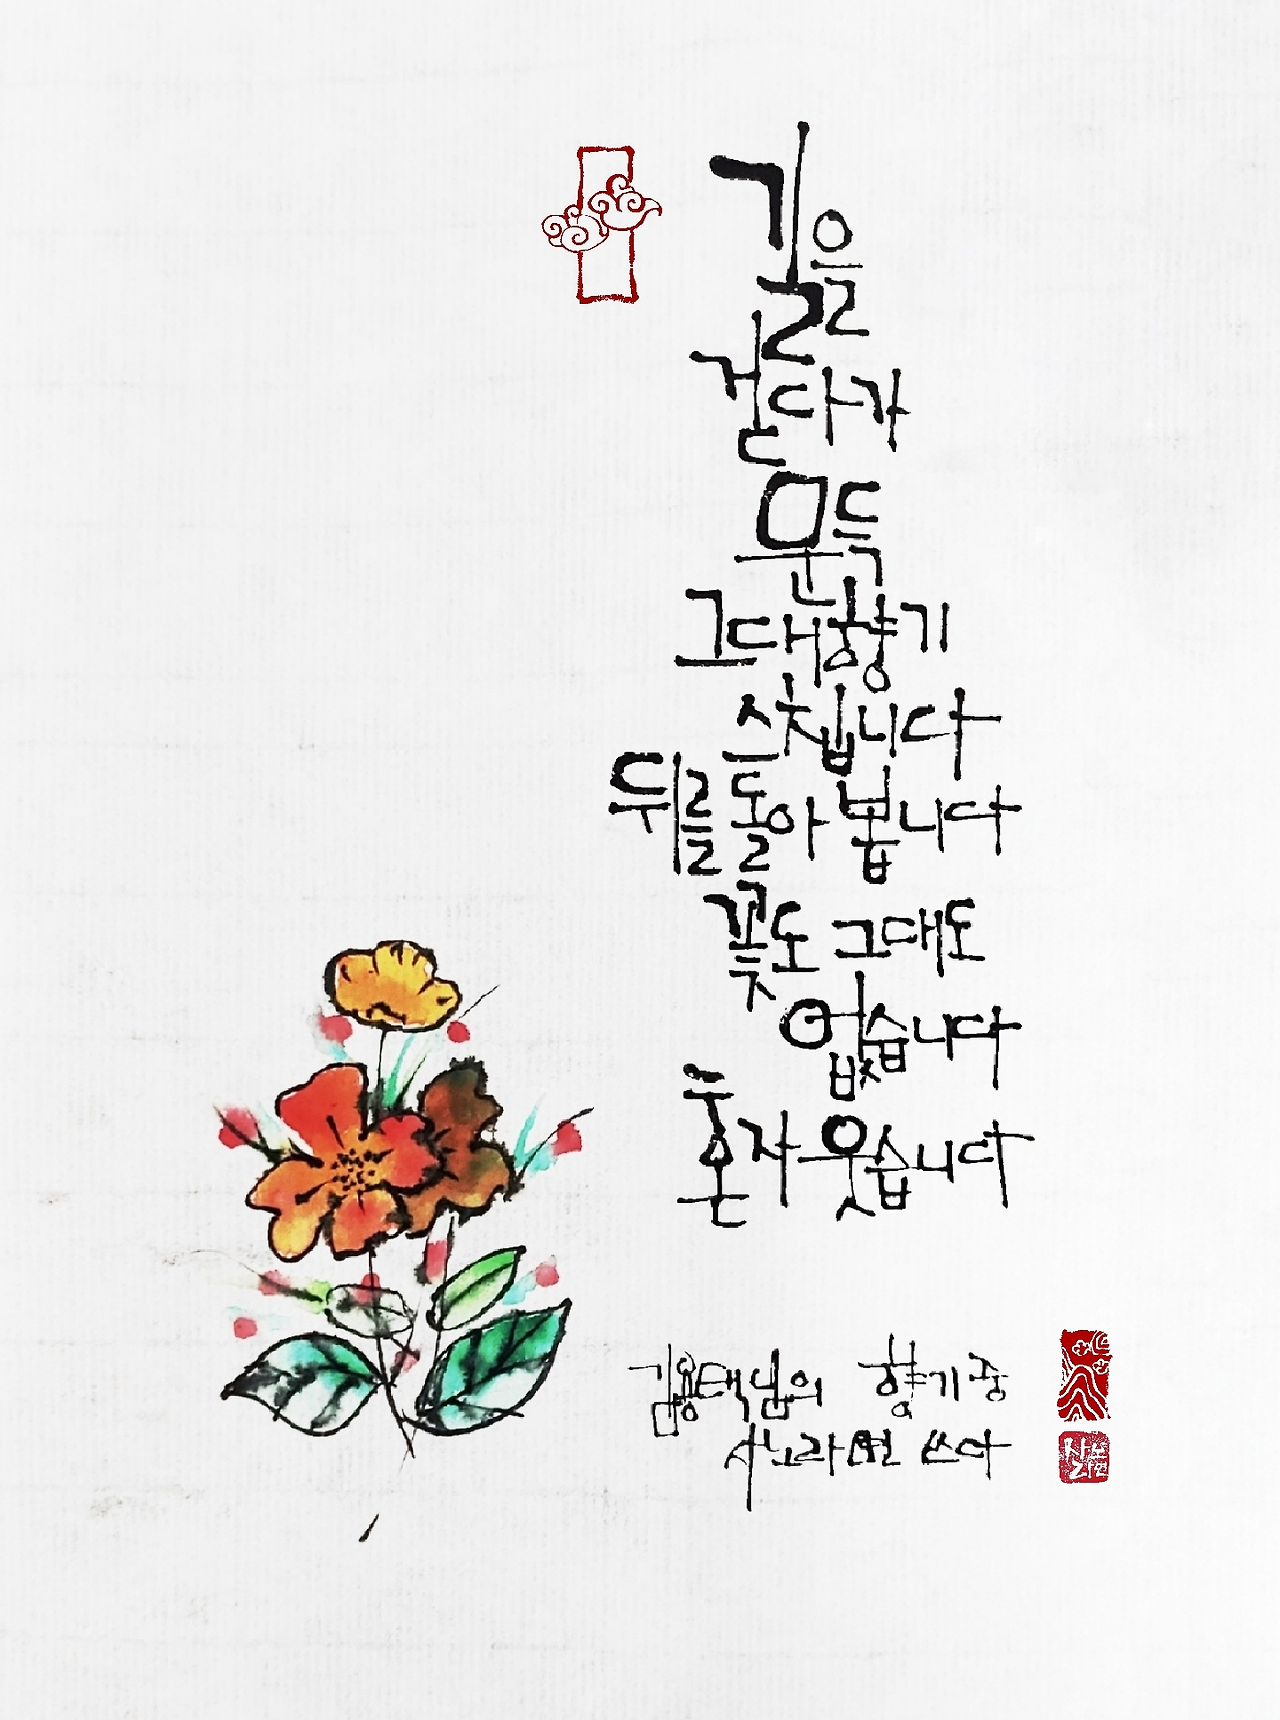 길을
걷다가
문득
그대향기
스칩니다
뒤를 돌아 봅니다
꽃도 그대도
없습니다
혼자 웃습니다
김용택님의 향기 중
사노라면 쓰다